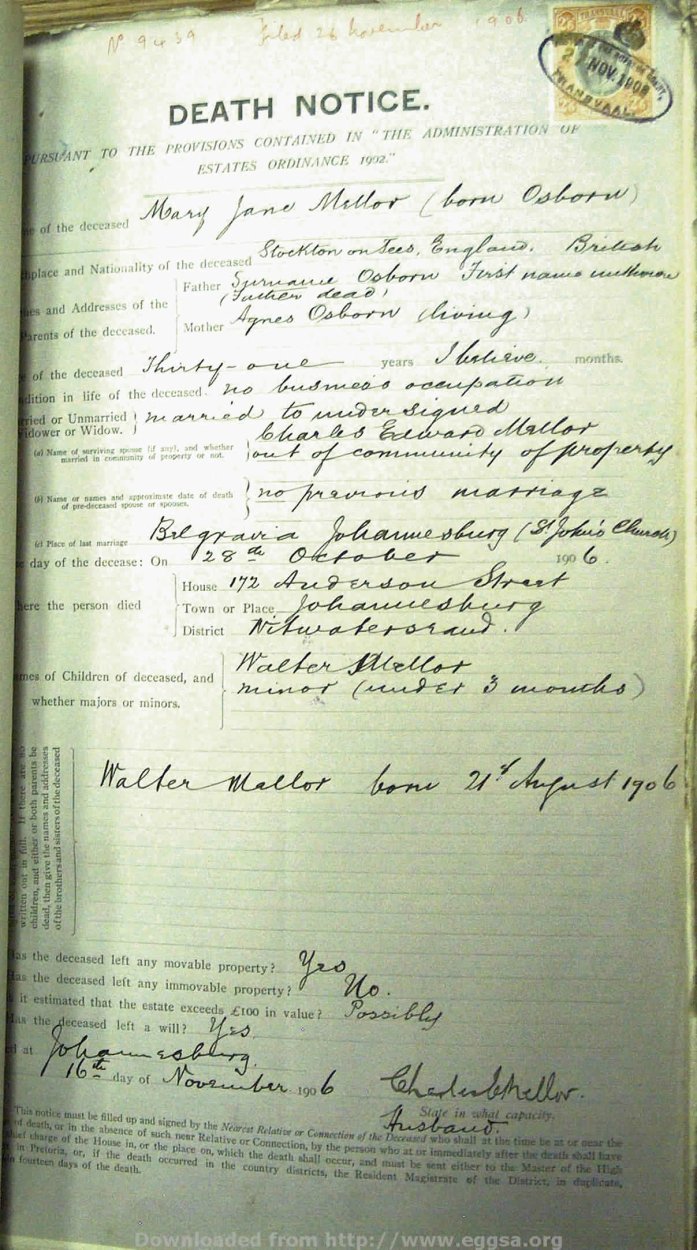 No 9439 Filed 26 November 1906
TRANSVAAL
27 NOV. 1906
TRANSVAAL
DEATH NOTICE.
PURSUANT TO THE PROVISIONS CONTAINED IN "THE ADMINISTRATION OF
ESTATES ORDINANCE 1902."
of the deceased Mary Jane Mellor (born Osborn)
place and Nationality of the deceased Stockton on Tees, England. British
Father Surname Osborn First name unknown
(Father dead)
es and Addresses of the
Parents of the deceased.
Mother Agnes Osborn (living)
of the deceased Thirty-one years I believe months.
dition in life of the deceased no business occupation
rried or Unmarried married to undersigned
Widower or Widow. Charles Edward Mellor
(a) Name of surviving spouse (if any), and whether
married in community of property or not. out of community of property
(b) Name or names and approximate date of death
of pre-deceased spouse or spouses. no previous marriage
(c) Place of last marriage Belgravia Johannesburg (St John's Church)
day of the decease: On 28th October 1906.
House 172 Anderson Street
here the person died Town or Place Johannesburg
District Witwatersrand.
mes of Children of deceased, and Walter Mellor
whether majors or minors. minor (under 3 months)
written out in full. If there are no
children, and either or both parents be
dead, then give the names and addresses
of the brothers and sisters of the deceased
Walter Mellor born 21st August 1906
Has the deceased left any movable property? Yes
Has the deceased left any immovable property? No.
it estimated that the estate exceeds £100 in value? Possibly
Has the deceased left a will? Yes.
at Johannesburg.
16th day of November 1906 Charles E Mellor.
State in what capacity.
Husband.
This notice must be filled up and signed by the Nearest Relative or Connection of the Deceased who shall at the time be at or near the
of death, or in the absence of such near Relative or Connection, by the person who at or immediately after the death shall have
chief charge of the House in, or the place on, which the death shall occur, and must be sent either to the Master of the High
in Pretoria, or, if the death occurred in the country districts, the Resident Magistrate of the District, in duplicate,
fourteen days of the death.
Downloaded from http://www.eggsa.org